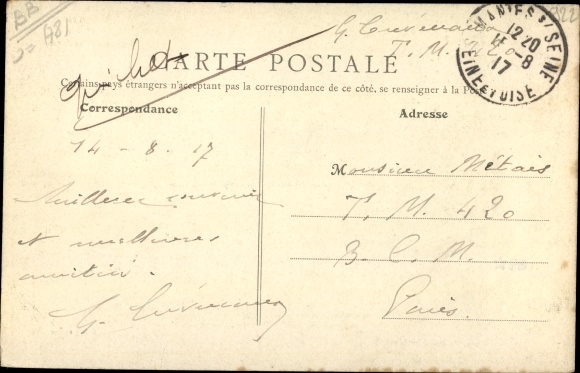 BB
A81
G.
T. M. 420
MANTES S/ SEINE
12 20
15 - 8
17
SEINE ET OISE
CARTE POSTALE
Certains pays étrangers n'acceptant pas la correspondance de ce côté, se renseigner à la Poste
Correspondance
Adresse
14 - 8 - 17
Monsieur Métais
Meilleur souvenir
T. M. 420
et meilleures
B. C. M.
amitiés.
Paris.
G.